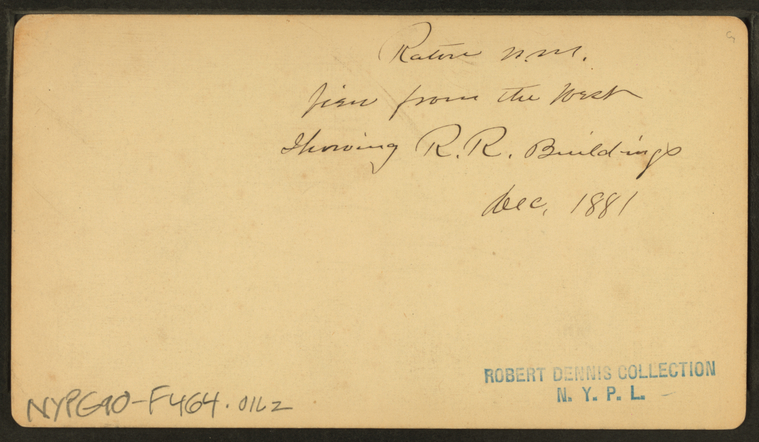 Raton N.M.
View from the West
Showing R.R. Buildings
Dec, 1881
ROBERT DENNIS COLLECTION
N. Y. P. L.
NYPG90-F464.0162